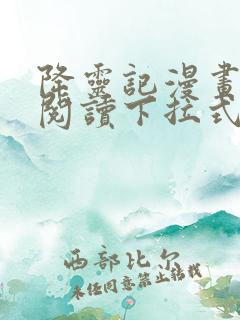 降靈記漫畫
閱讀下拉式
西部比尔
未经同意禁止转载